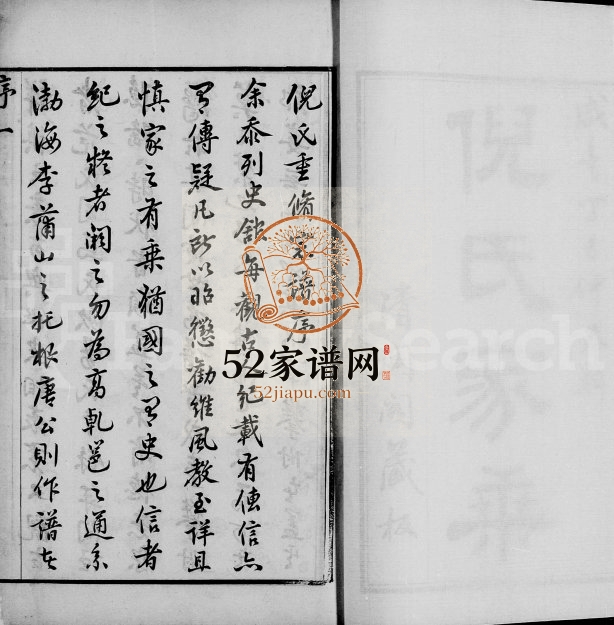 倪氏重脩宗譜序
余忝列史舘每觀古紀載有傳信亦
有傳疑凡所以昭懲勸維風教至詳且
慎家之有乗猶國之有史也信者
紀之疑者闕之勿為高乹邕之通系
渤海李蒲山之托根唐公則作譜之
序一
52家谱网
52jiapu.com